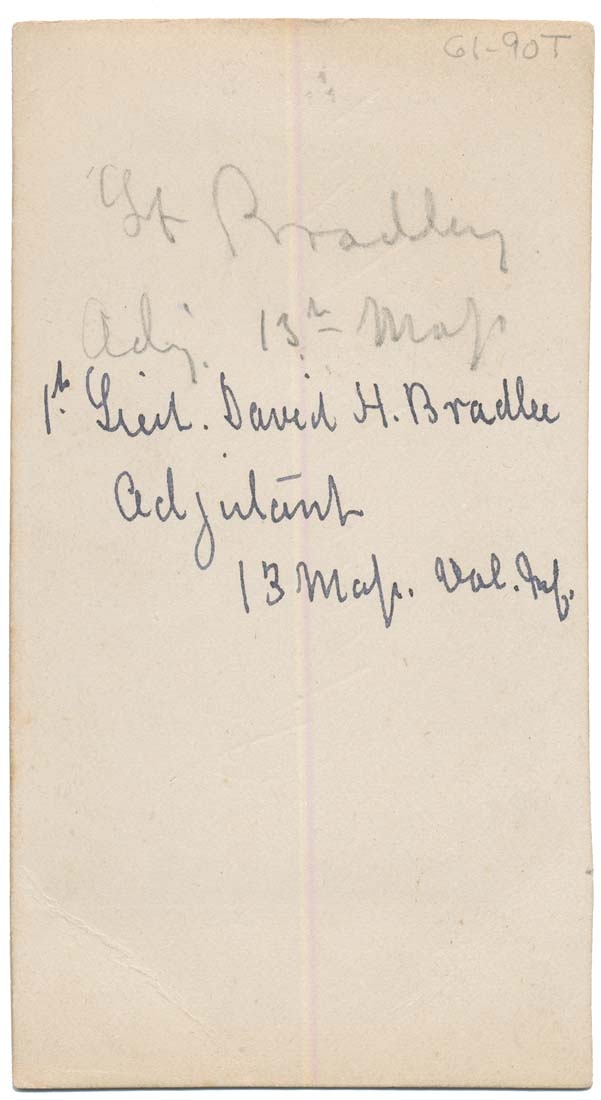 61-90T
Lt Bradley
Adj. 13th Mass
1st. Lieut. David H. Bradlee
Adjutant
13 Mass. Vol. Inf.